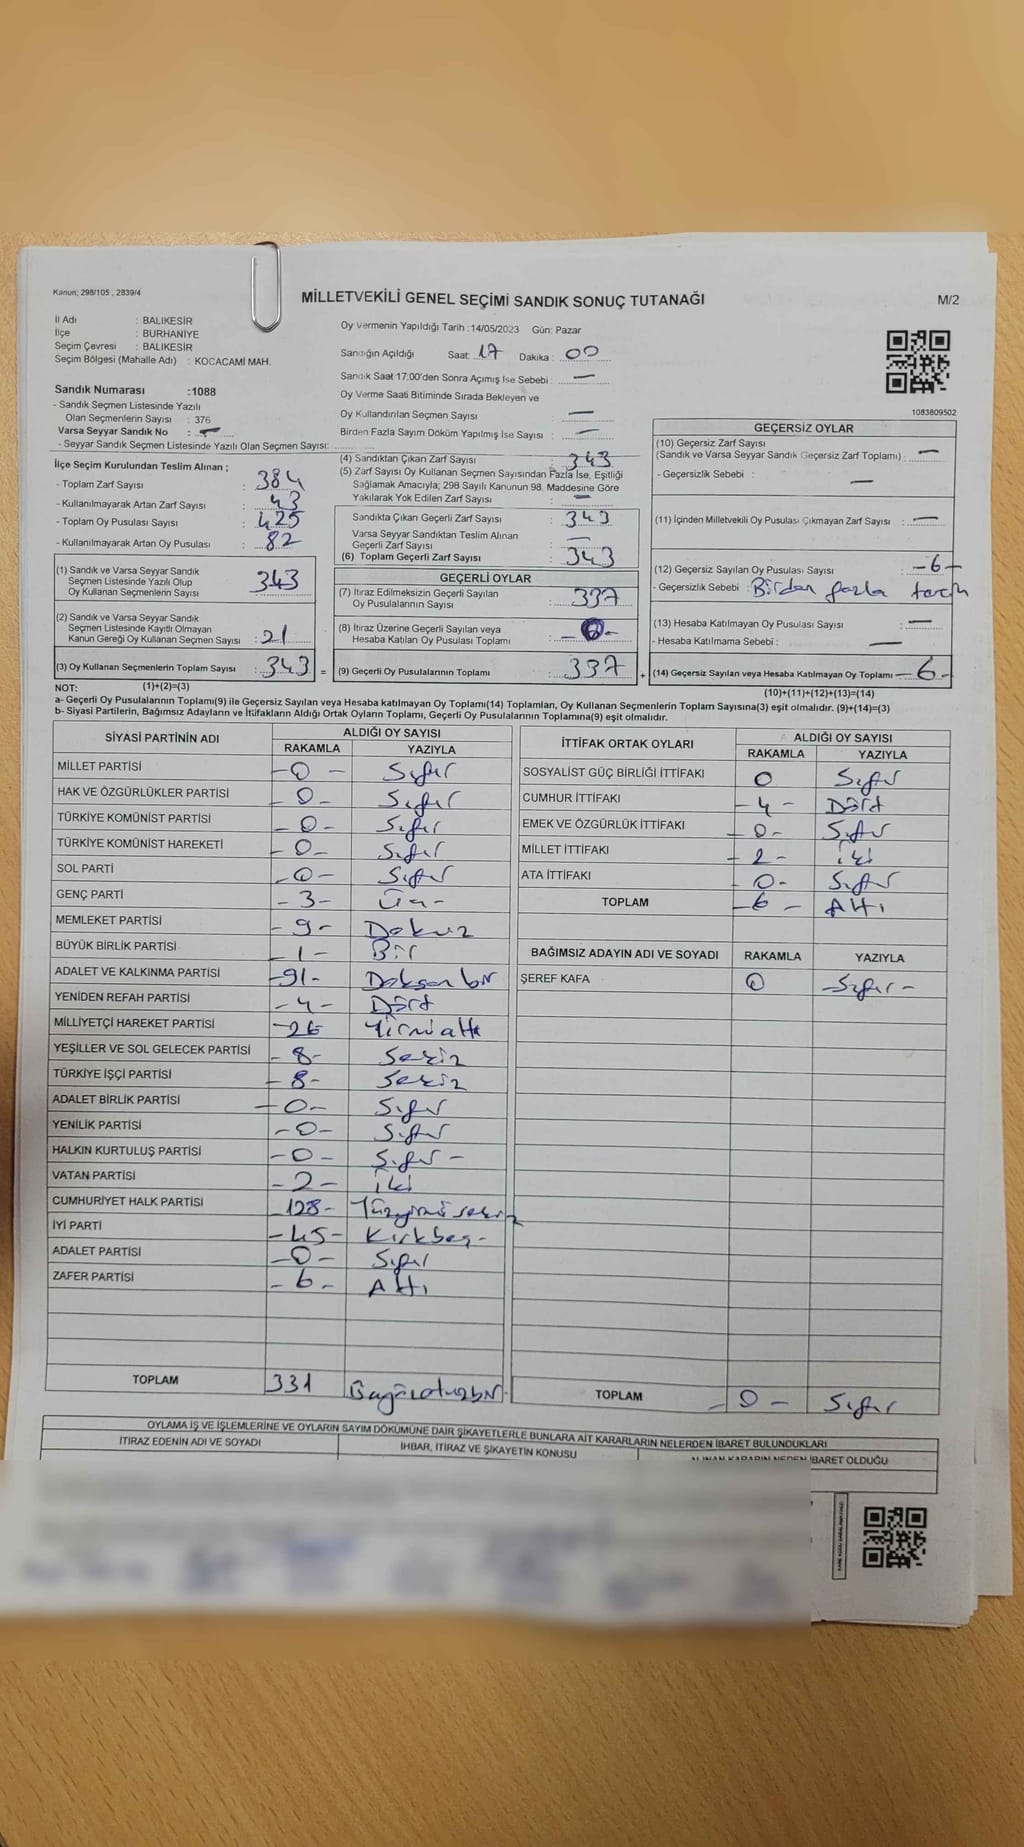 Kanun; 298/105 , 2839/4
MİLLETVEKİLİ GENEL SEÇİMİ SANDIK SONUÇ TUTANAĞI
M/2
İl Adı : BALIKESİR
İlçe : BURHANİYE
Seçim Çevresi : BALIKESİR
Seçim Bölgesi (Mahalle Adı) : KOCACAMİ MAH.
Sandık Numarası :1088
- Sandık Seçmen Listesinde Yazılı
Olan Seçmenlerin Sayısı : 376
Varsa Seyyar Sandık No : —
- Seyyar Sandık Seçmen Listesinde Yazılı Olan Seçmen Sayısı:
Oy Vermenin Yapıldığı Tarih :14/05/2023 Gün: Pazar
Sandığın Açıldığı Saat: 17 Dakika : 00
Sandık Saat 17:00'den Sonra Açımış İse Sebebi : —
Oy Verme Saati Bitiminde Sırada Bekleyen ve
Oy Kullandırılan Seçmen Sayısı —
Birden Fazla Sayım Döküm Yapılmış İse Sayısı : —
1083809502
İlçe Seçim Kurulundan Teslim Alınan ;
- Toplam Zarf Sayısı : 384
- Kullanılmayarak Artan Zarf Sayısı : 43
- Toplam Oy Pusulası Sayısı : 425
- Kullanılmayarak Artan Oy Pusulası : 82
(1) Sandık ve Varsa Seyyar Sandık
Seçmen Listesinde Yazılı Olup
Oy Kullanan Seçmenlerin Sayısı 343
(2) Sandık ve Varsa Seyyar Sandık
Seçmen Listesinde Kayıtlı Olmayan
Kanun Gereği Oy Kullanan Seçmen Sayısı : 21
(3) Oy Kullanan Seçmenlerin Toplam Sayısı : 343 =
(4) Sandıktan Çıkan Zarf Sayısı : 343
(5) Zarf Sayısı Oy Kullanan Seçmen Sayısından Fazla İse, Eşitliği
Sağlamak Amacıyla; 298 Sayılı Kanunun 98. Maddesine Göre
Yakılarak Yok Edilen Zarf Sayısı : —
Sandıkta Çıkan Geçerli Zarf Sayısı : 343
Varsa Seyyar Sandıktan Teslim Alınan
Geçerli Zarf Sayısı : —
(6) Toplam Geçerli Zarf Sayısı : 343
GEÇERLİ OYLAR
(7) İtiraz Edilmeksizin Geçerli Sayılan
Oy Pusulalarının Sayısı : 337
(8) İtiraz Üzerine Geçerli Sayılan veya
Hesaba Katılan Oy Pusulası Toplamı : -0-
(9) Geçerli Oy Pusulalarının Toplamı : 337 +
GEÇERSİZ OYLAR
(10) Geçersiz Zarf Sayısı
(Sandık ve Varsa Seyyar Sandık Geçersiz Zarf Toplamı) : —
- Geçersizlik Sebebi : —
(11) İçinden Milletvekili Oy Pusulası Çıkmayan Zarf Sayısı : —
(12) Geçersiz Sayılan Oy Pusulası Sayısı : -6-
- Geçersizlik Sebebi : Birden fazla tercih
(13) Hesaba Katılmayan Oy Pusulası Sayısı : —
- Hesaba Katılmama Sebebi : —
(14) Geçersiz Sayılan veya Hesaba Katılmayan Oy Toplamı - 6 -
NOT: (1)+(2)=(3)
(10)+(11)+(12)+(13)=(14)
a- Geçerli Oy Pusulalarının Toplamı(9) ile Geçersiz Sayılan veya Hesaba katılmayan Oy Toplamı(14) Toplamları, Oy Kullanan Seçmenlerin Toplam Sayısına(3) eşit olmalıdır. (9)+(14)=(3)
b- Siyasi Partilerin, Bağımsız Adayların ve İtifakların Aldığı Ortak Oyların Toplamı, Geçerli Oy Pusulalarının Toplamına(9) eşit olmalıdır.
SİYASİ PARTİNİN ADI ALDIĞI OY SAYISI
RAKAMLA YAZIYLA
MİLLET PARTİSİ -0- Sıfır
HAK VE ÖZGÜRLÜKLER PARTİSİ -0- Sıfır
TÜRKİYE KOMÜNİST PARTİSİ -0- Sıfır
TÜRKİYE KOMÜNİST HAREKETİ -0- Sıfır
SOL PARTİ -0- Sıfır
GENÇ PARTİ -3- Üç-
MEMLEKET PARTİSİ -9- Dokuz
BÜYÜK BİRLİK PARTİSİ -1- Bir
ADALET VE KALKINMA PARTİSİ -91- Doksan bir
YENİDEN REFAH PARTİSİ -4- Dört
MİLLİYETÇİ HAREKET PARTİSİ -26 Yirmi altı
YEŞİLLER VE SOL GELECEK PARTİSİ -8- Sekiz
TÜRKİYE İŞÇİ PARTİSİ -8- Sekiz
ADALET BİRLİK PARTİSİ -0- Sıfır
YENİLİK PARTİSİ -0- Sıfır
HALKIN KURTULUŞ PARTİSİ -0- Sıfır -
VATAN PARTİSİ -2- İki
CUMHURİYET HALK PARTİSİ -128- Yüzyirmi sekiz
İYİ PARTİ -45- Kırkbeş-
ADALET PARTİSİ -0- Sıfır
ZAFER PARTİSİ -6- Altı
TOPLAM 331 Üçyüzotuzbir
İTTİFAK ORTAK OYLARI ALDIĞI OY SAYISI
RAKAMLA YAZIYLA
SOSYALİST GÜÇ BİRLİĞİ İTTİFAKI 0 Sıfır
CUMHUR İTTİFAKI -4- Dört
EMEK VE ÖZGÜRLÜK İTTİFAKI -0- Sıfır
MİLLET İTTİFAKI -2- İki
ATA İTTİFAKI -0- Sıfır
TOPLAM -6- Altı
BAĞIMSIZ ADAYIN ADI VE SOYADI RAKAMLA YAZIYLA
ŞEREF KAFA 0 -Sıfır-
TOPLAM -0- Sıfır
OYLAMA İŞ VE İŞLEMLERİNE VE OYLARIN SAYIM DÖKÜMÜNE DAİR ŞİKAYETLERLE BUNLARA AİT KARARLARIN NELERDEN İBARET BULUNDUKLARI
İTİRAZ EDENİN ADI VE SOYADI İHBAR, İTİRAZ VE ŞİKAYETİN KONUSU ALINAN KARARIN NEDEN İBARET OLDUĞU